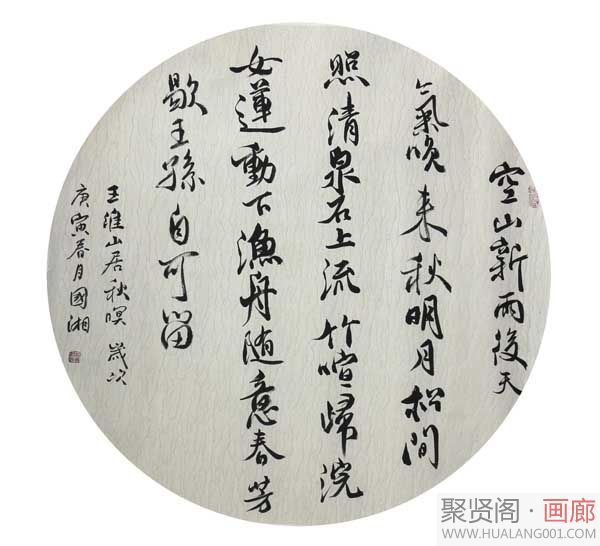 空山新雨後天
氣晚来秋明月松間
照清泉石上流竹喧歸浣
女蓮動下漁舟随意春芳
歇王孫自可留
王維山居秋暝歲次
庚寅春月國湘
聚贤阁·画廊
WWW.HUALANG001.COM